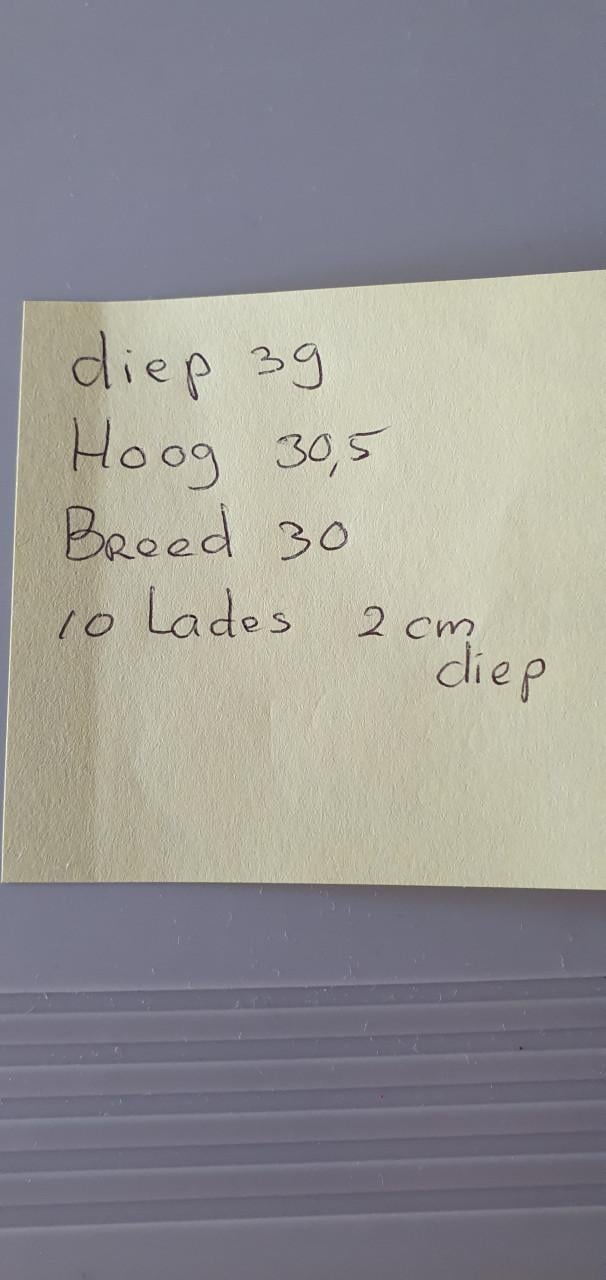 diep 39
Hoog 30,5
Breed 30
10 Lades 2 cm
diep